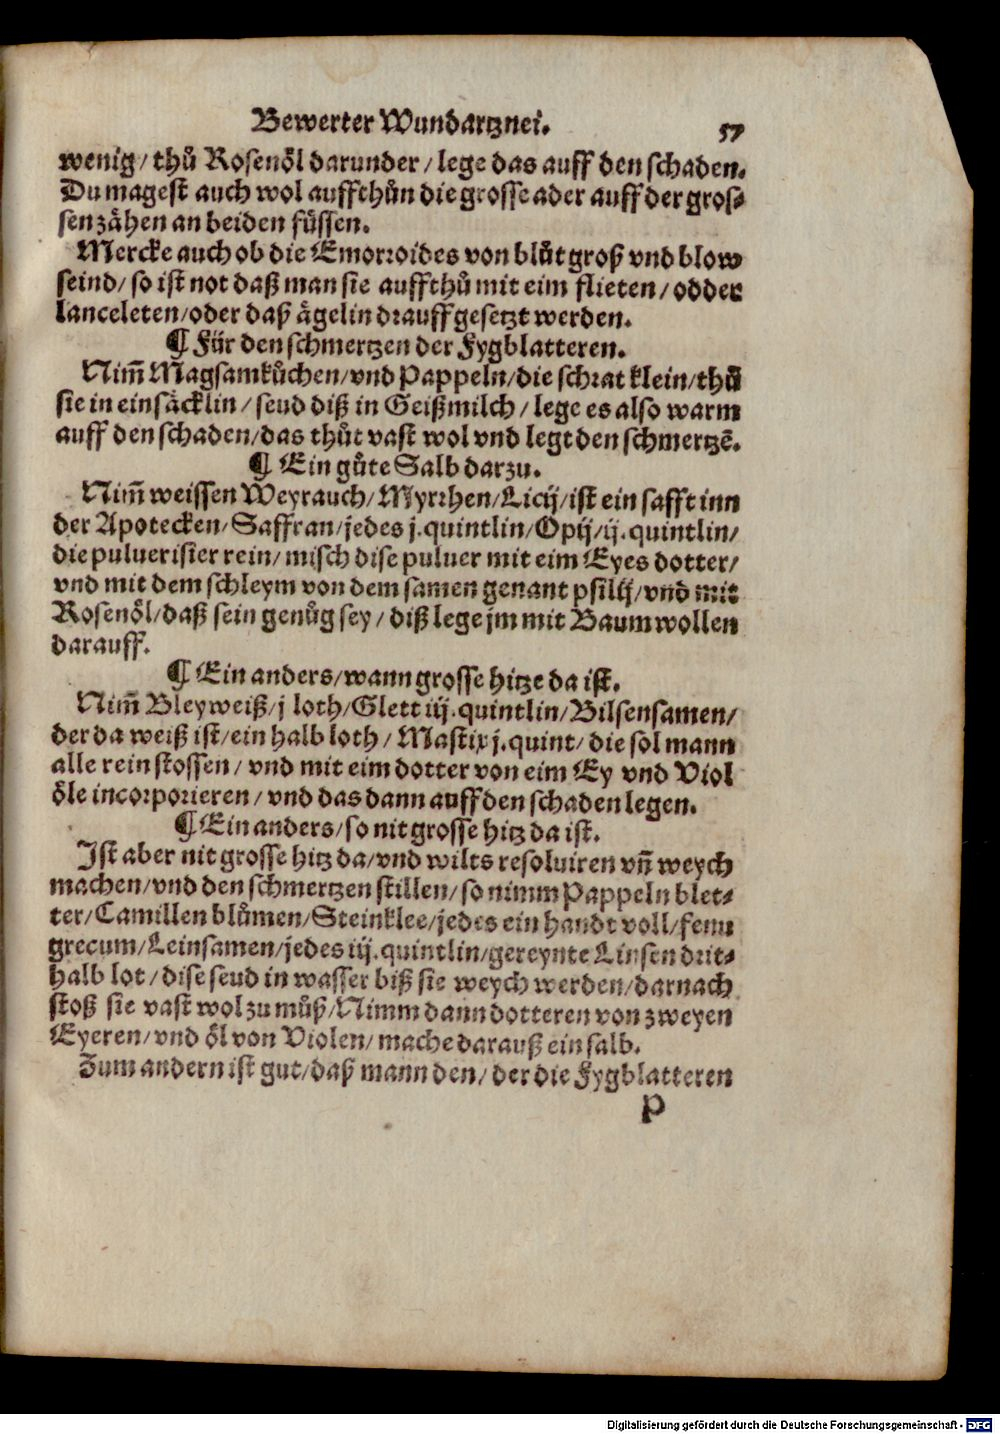 Bewerter Wundartznei. 57
wenig/ thů Rosenöl darunder/ lege das auff den schaden.
Du magest auch wol auffthůn die grosse ader auff der gros⸗
sen zähen an beiden füssen.
Mercke auch ob die Emorroides von blůt groß vnd blow
seind/ so ist not daß man sie auffthů mit eim flieten/ odder
lanceleten/ oder daß ägelin drauff gesetzt werden.
¶ Für den schmertzen der Fygblatteren.
Nim̃ Magsamkůchen/ vnd Pappeln/ die schrat klein/ thů
sie in ein säcklin/ seud diß in Geißmilch/ lege es also warm
auff den schaden/ das thůt vast wol vnd legt den schmertzẽ.
¶ Ein gůte Salb darzu.
Nim̃ weissen Weyrauch/ Myrrhen/ Licij/ ist ein safft inn
der Apotecken/ Saffran/ jedes j. quintlin/ Opij/ ij. quintlin/
die puluerisier rein/ misch dise puluer mit eim Eyes dotter/
vnd mit dem schleym von dem samen genant psilij/ vnd mit
Rosenöl/ daß sein genůg sey/ diß lege jm mit Baumwollen
darauff.
¶ Ein anders/ wann grosse hitze da ist.
Nim̃ Bleyweiß/ j loth/ Glett iij. quintlin/ Bilsensamen/
der da weiß ist/ ein halb loth/ Mastix j. quint/ die sol mann
alle rein stossen/ vnd mit eim dotter von eim Ey vnd Viol
öle incorporieren/ vnd das dann auff den schaden legen.
¶ Ein anders/ so nit grosse hitz da ist.
Ist aber nit grosse hitz da/ vnd wilts resoluiren vñ weych
machen/ vnd den schmertzen stillen/ so nimm Pappeln blet⸗
ter/ Camillen blůmen/ Steinklee/ jedes ein handt voll/ fenu
grecum/ Leinsamen/ jedes iij. quintlin/ gereynte Linsen drit⸗
halb lot/ dise seud in wasser biß sie weych werden/ darnach
stoß sie vast wol zu můß/ Nimm dann dotteren von zweyen
Eyeren/ vnd öl von Violen/ mache darauß ein salb.
Zum andern ist gut/ daß mann den/ der die Fygblatteren
P
Digitalisierung gefördert durch die Deutsche Forschungsgemeinschaft - DFG